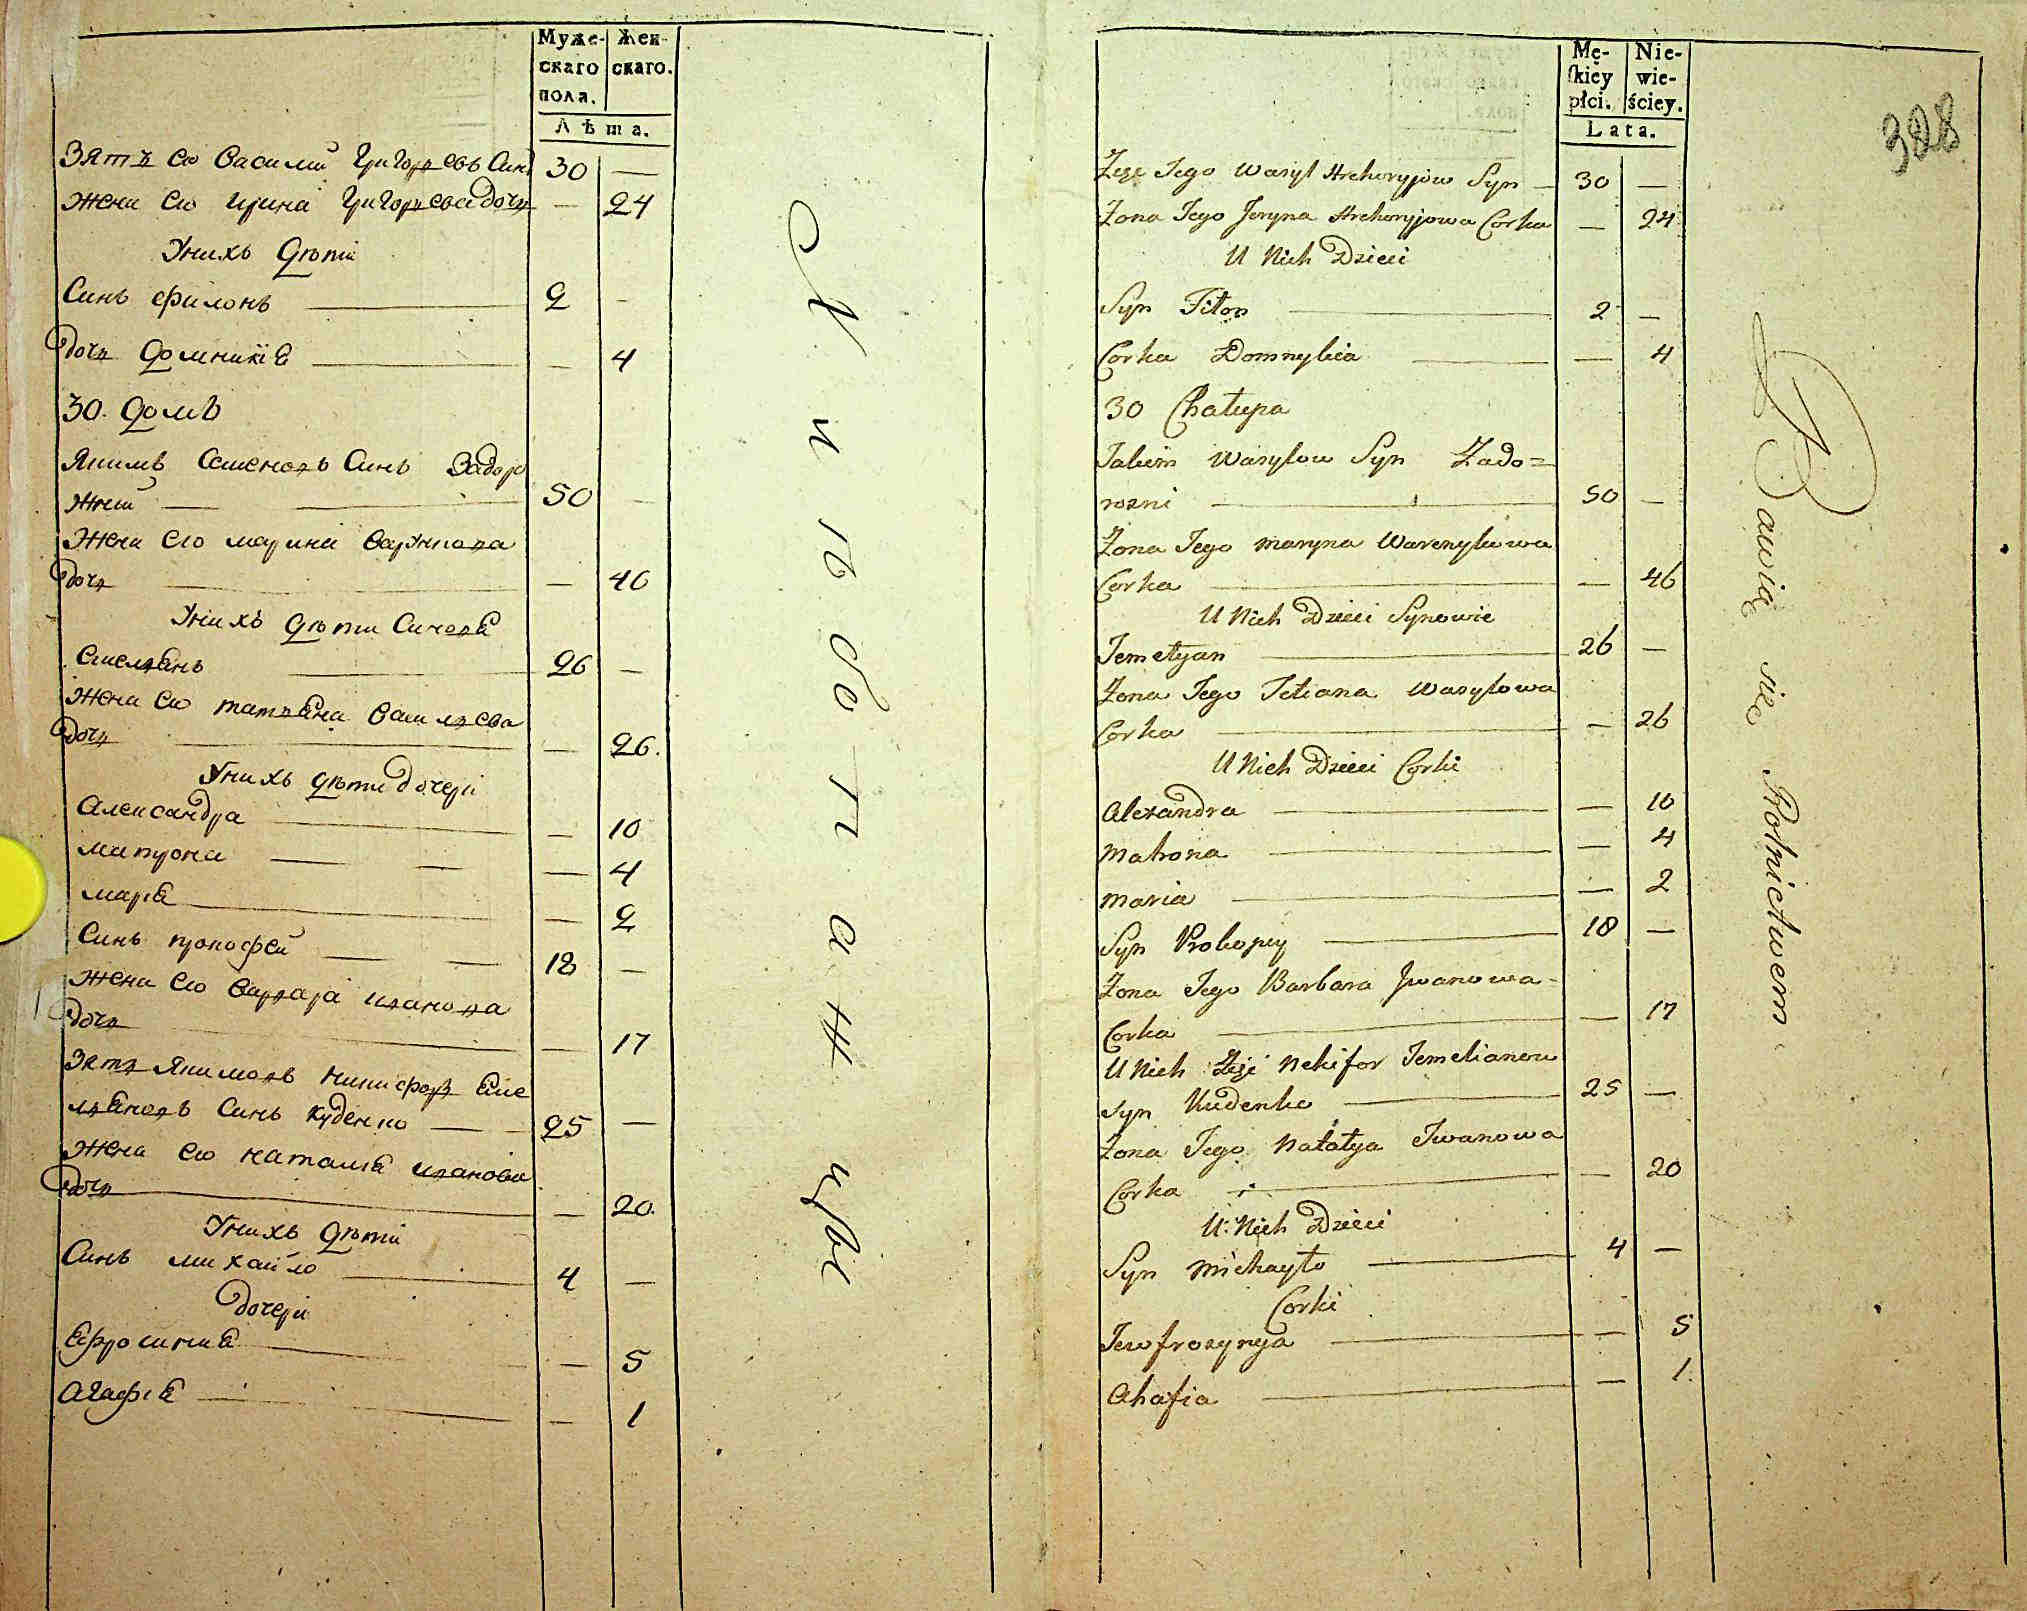 Муже-
скаго
пола.
Жен-
скаго.
Лѣта.
Зятъ его Василий Григорьевъ Синъ 30 —
Жена его Ирина Григорьева дочь — 24
У нихъ дѣти
Синъ Филонъ — 2 —
дочь Домникія — — 4
30. домъ
Якимъ Семеновъ Синъ Задоро
жній — 50 —
Жена его Марина
дочь — — 46
У нихъ дѣти Синовя
Емельянъ — 26 —
Жена его Татьяна Васильева
дочь — — 26.
У нихъ дѣти дочери
Александра — — 10
Матрона — — 4
Марія — — 2
Синъ Прокофей — 18 —
Жена его Варвара Иванова
дочь — — 17
Зять Якимовъ Никифоръ Еме
льяновъ Синъ Куденко — 25 —
Жена его Наталія Иванова
дочь — — 20.
У нихъ дѣти
Синъ Михайло — 4 —
дочери
Ефросинія — — 5
Агафія — — 1
Mę-
ſkiey
płci.
Nie-
wie-
ściey.
Lata.
328
Zięć Jego Wasyl Hrehoryjow Syn — 30 —
Żona Jego Jeryna Hrehoryjowa Corka — 24
U Nich Dzieci
Syn Filon — 2 —
Corka Domnykia — — 4
30 Chałupa
Jakim Wasylow Syn Zado=
rozni — 50 —
Żona Jego Maryna Warenykowa
Corka — — 46
U Nich Dzieci Synowie
Jemelyan — 26 —
Żona Jego Tetiana Wasylowa
Corka — — 26
U Nich Dzieci Corki
Alexandra — — 10
Matrona — — 4
Maria — — 2
Syn Prokopey — 18 —
Żona Jego Barbara Jwanowa-
Corka — — 17
U Nich Zięć Nekifor Jemelianow
Syn Kudenko — 25 —
Żona Jego Natalya Iwanowa
Corka — — 20
U: Nich Dzieci
Syn Michayło — 4 —
Corki
Jewfrozynya — — 5
Ahafia — — 1.
Bawią się Rolnictwem